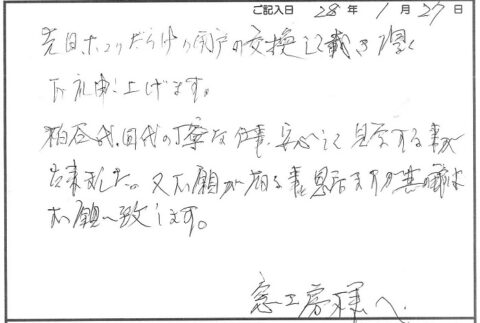 ご記入日 28 年 1 月 27 日
先日ホコリだらけの雨戸の交換して戴き厚く
お礼申し上げます。
粕谷氏、田代の丁寧な仕事、安心して見学する事が
出来ました。又お願いが有る事と思いますが其の節は
お願い致します。
窓工房様へ